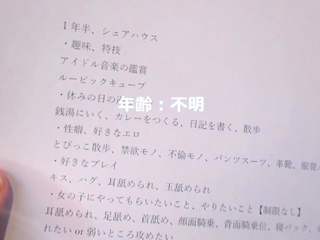 1年半、シェアハウス
・趣味、特技
アイドル音楽の鑑賞
ルービックキューブ
・休みの日の
年齢：不明
銭湯にいく、カレーをつくる、日記を書く、散歩
・性癖、好きなエロ
とびっこ散歩、禁欲モノ、不倫モノ、パンツスーツ、革靴、
・好きなプレイ
キス、ハグ、耳舐められ、玉舐められ
・女の子にやってもらいたいこと、やりたいこと【制限なし】
耳舐められ、足舐め、首舐め、顔面騎乗、背面騎乗位、寝バック、
れたい or 弱いところ攻めたい